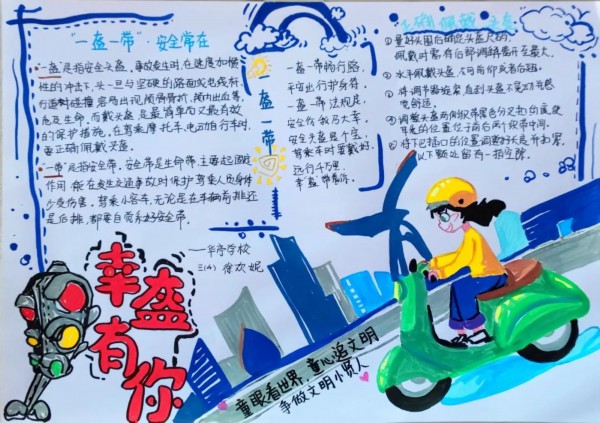 "一盔一带"，安全常在
"一盔"是指安全头盔，事故发生时，在速度加惯
性的冲击下，头一旦与坚硬的路面或电线杆、
行道树碰撞，容易出现颅骨骨折、颅内出血等，
危及生命，而戴头盔是最简单而又最有效
的保护措施，在驾乘摩托车、电动自行车时，
要正确佩戴头盔。
"一带"是指安全带，安全带是生命带，主要起固定
作用，能在发生交通事故时保护驾乘人员身体
少受伤害，驾乘小客车，无论是在车辆前排还
是后排，都要自觉系好安全带。
一盔一带
一盔一带畅行路，
平安出行护身符。
一盔一带法规定，
安全你我与大幸，
安全头盔是个宝，
驾乘车时要戴好，
远行千万里，
幸"盔"有你。
正确佩戴头盔
① 量好头围后确定头盔尺码，
佩戴时需将后部调节器开至最大。
② 水平佩戴头盔，不可前仰或者后翘。
③ 将调节器旋紧，直到头盔不晃动并感
觉舒适。
④ 调整头盔两侧织带
耳朵的位置位于前后两个织带中间。
⑤ 将下巴插口的位置调整好
以下颚处留有一指空隙。
学校
三(4) 徐欢妮
幸盔有你
童眼看世界，童心绘文明
争做文明小贤人